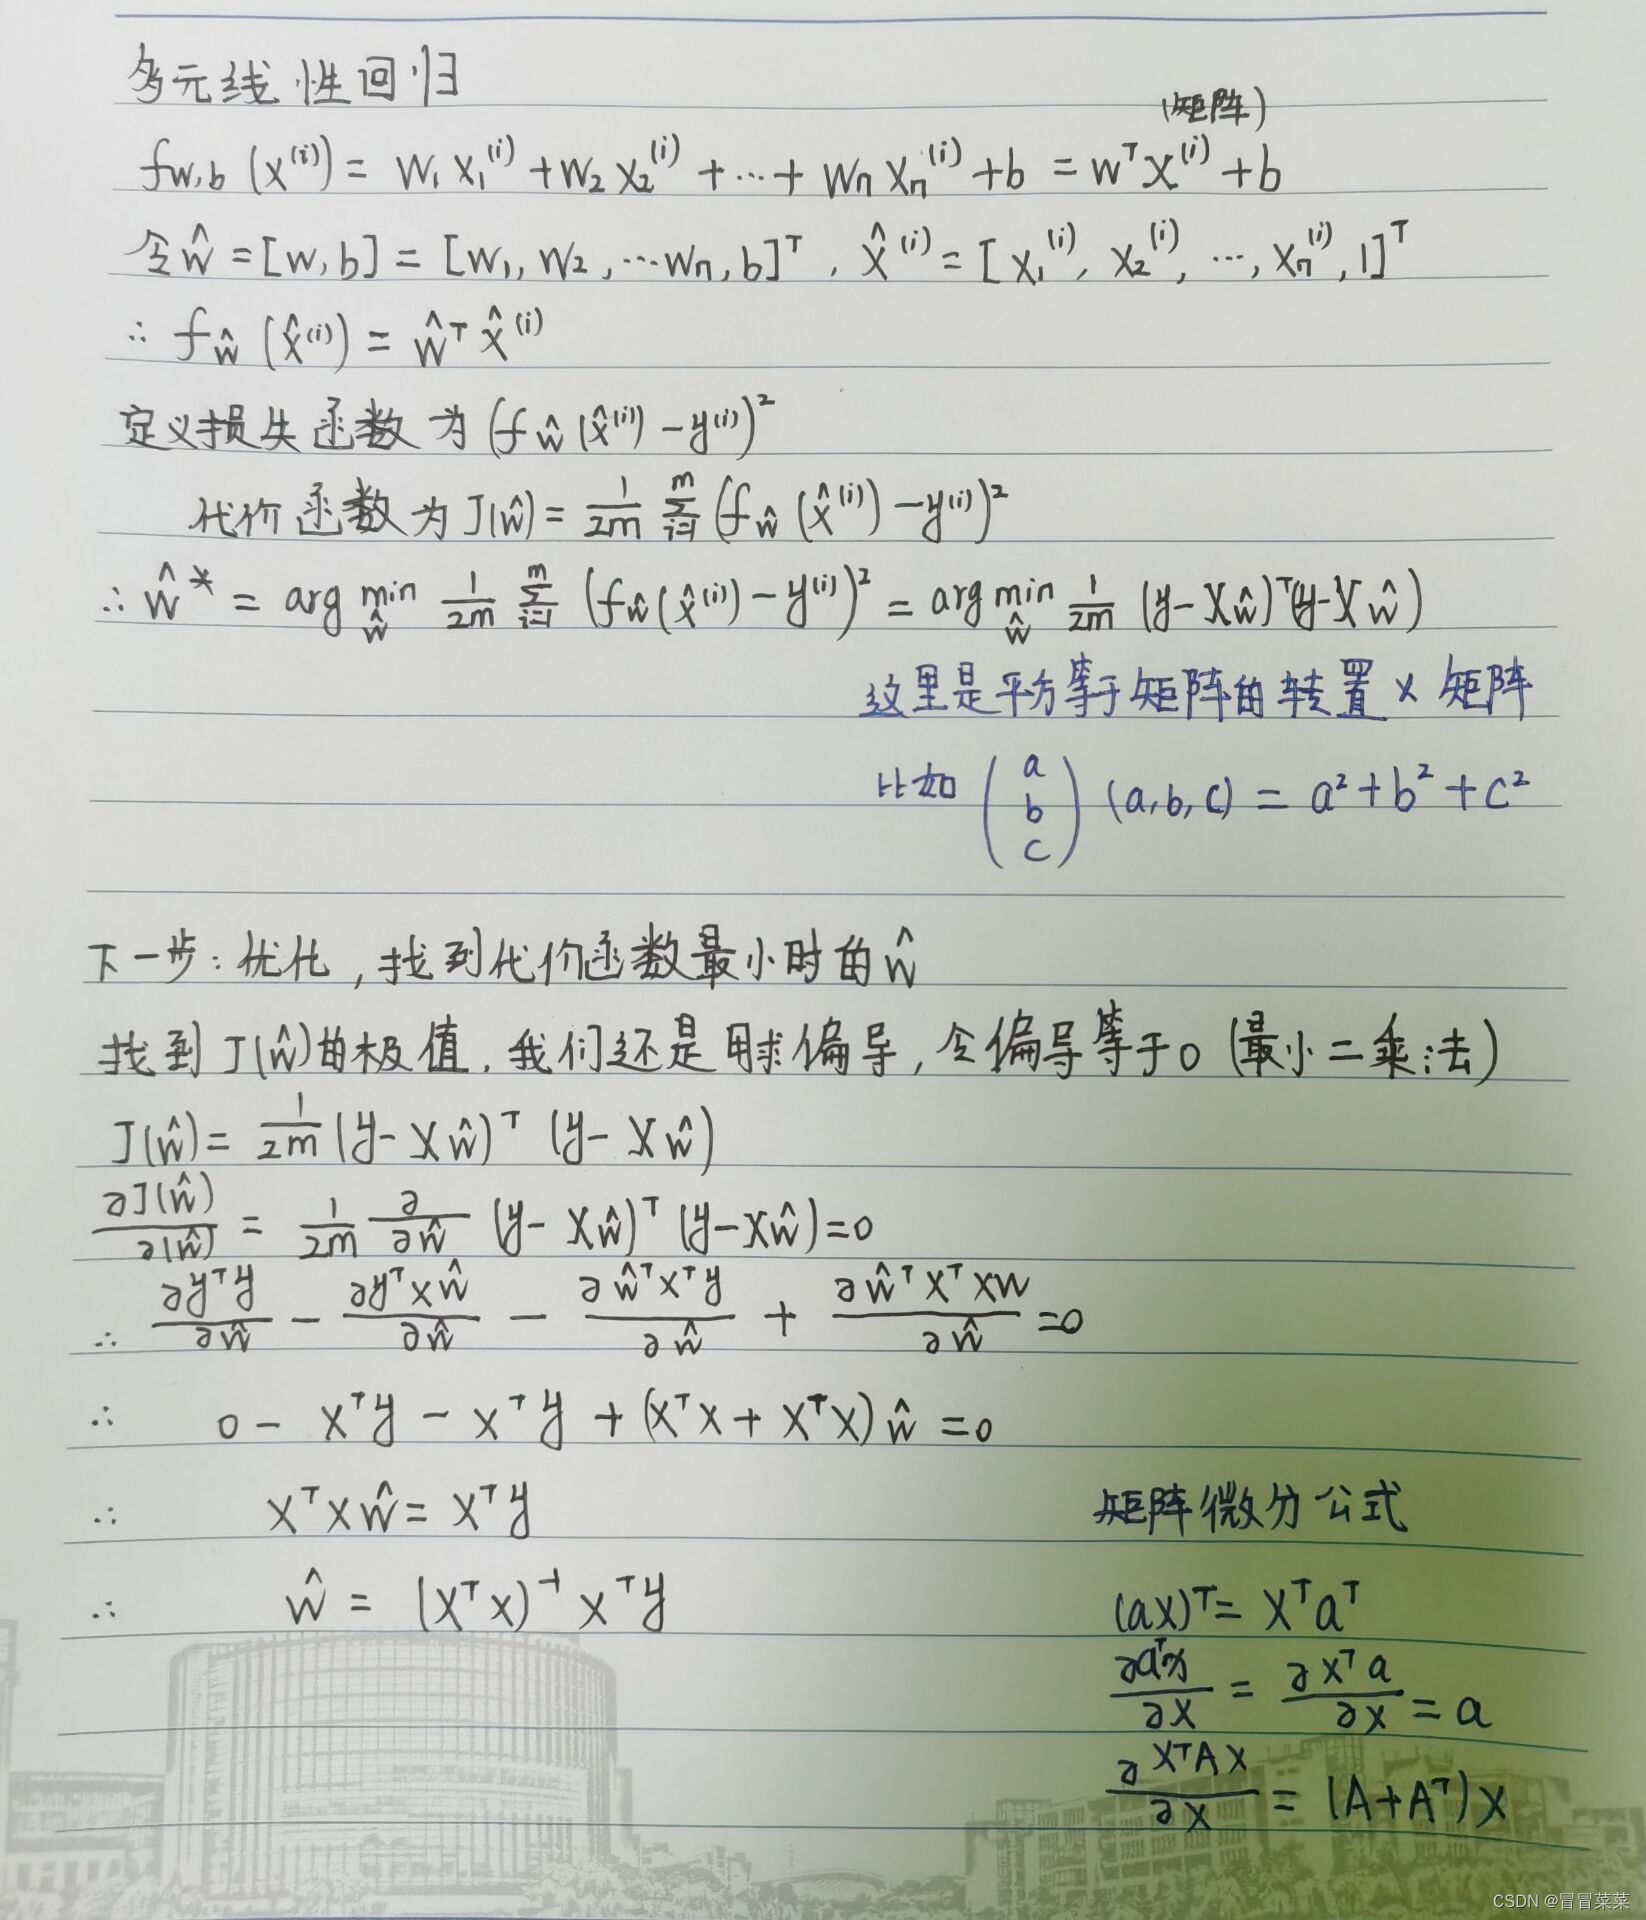 多元线性回归
(矩阵)
f_{w,b}(x^{(i)}) = w₁x₁^{(i)} + w₂x₂^{(i)} + ⋯ + wₙxₙ^{(i)} + b = w^T x^{(i)} + b
令ŵ = [w, b] = [w₁, w₂, ⋯wₙ, b]^T , x̂^{(i)} = [x₁^{(i)}, x₂^{(i)}, ⋯, xₙ^{(i)}, 1]^T
∴ f_ŵ(x̂^{(i)}) = ŵ^T x̂^{(i)}
定义损失函数为 (f_ŵ(x̂^{(i)}) − y^{(i)})²
代价函数为 J(ŵ) = 1/2m ∑_{i=1}^{m} (f_ŵ(x̂^{(i)}) − y^{(i)})²
∴ ŵ* = arg min_ŵ 1/2m ∑_{i=1}^{m} (f_ŵ(x̂^{(i)}) − y^{(i)})² = arg min_ŵ 1/2m (y − Xŵ)^T(y − Xŵ)
这里是平方等于矩阵的转置 × 矩阵
比如 (a b c) (a, b, c) = a² + b² + c²
下一步：优化，找到代价函数最小时的ŵ
找到J(ŵ)的极值，我们还是用求偏导，令偏导等于0 (最小二乘法)
J(ŵ) = 1/2m (y − Xŵ)^T (y − Xŵ)
∂J(ŵ)/∂(ŵ) = 1/2m ∂/∂ŵ (y − Xŵ)^T (y − Xŵ) = 0
∴ ∂y^Ty/∂ŵ − ∂y^TXŵ/∂ŵ − ∂ŵ^TX^Ty/∂ŵ + ∂ŵ^TX^TXw/∂ŵ = 0
∴ 0 − X^Ty − X^Ty + (X^TX + X^TX)ŵ = 0
∴ X^TXŵ = X^Ty
矩阵微分公式
∴ ŵ = (X^TX)^{-1}X^Ty
(ax)^T = x^Ta^T
∂a^Tx/∂x = ∂x^Ta/∂x = a
∂x^TAx/∂x = (A+A^T)x
CSDN @冒冒菜菜